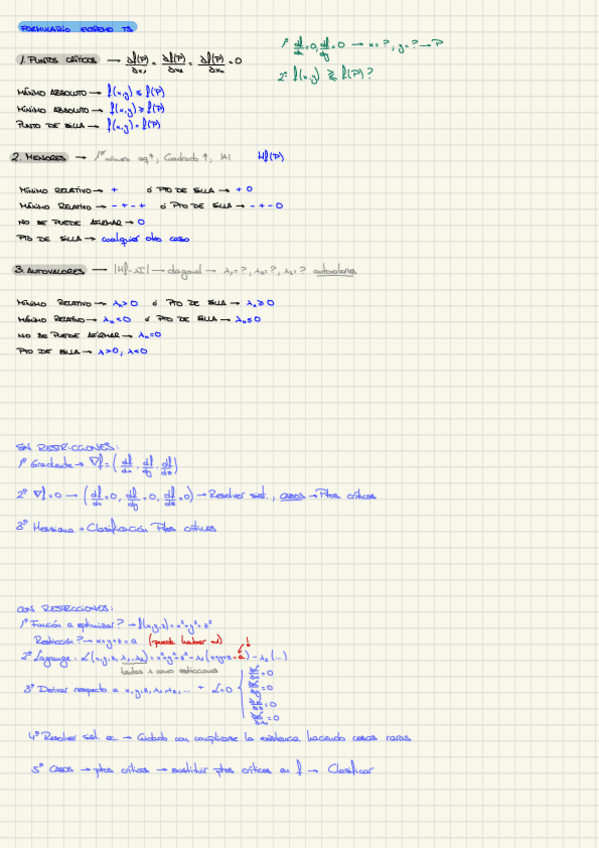 FORMULARIO EXTREMO T3
1. PUNTOS CRÍTICOS → ∂f(P)/∂x₁ = ∂f(P)/∂x₂ = ∂f(P)/∂xₙ = 0
1º df/dx=0, df/dy=0 → x=?, y=? → P
2º f(x,y) ≷ f(P)?
MÁXIMO ABSOLUTO → f(x,y) ≤ f(P)
MÍNIMO ABSOLUTO → f(x,y) ≥ f(P)
PUNTO DE SILLA → f(x,y) = f(P)
2. MENORES → 1er número izq↑, Cuadrado↑, |A| Hf(P)
MÍNIMO RELATIVO → + ó PTO DE SILLA → + 0
MÁXIMO RELATIVO → - + - + ó PTO DE SILLA → - + - 0
NO SE PUEDE AFIRMAR → 0
PTO DE SILLA → cualquier otro caso
3. AUTOVALORES → |Hf-λI| → diagonal → λ₁=?, λ₂=?, λ₃=? autovalores
MÍNIMO RELATIVO → λₙ>0 ó PTO DE SILLA → λₙ≥0
MÁXIMO RELATIVO → λₙ<0 ó PTO DE SILLA → λₙ≤0
NO SE PUEDE AFIRMAR → λₙ=0
PTO DE SILLA → λ>0, λ<0
SIN RESTRICCIONES:
1º Gradiente → ∇f = (df/dx, df/dy, df/dz)
2º ∇f=0 → (df/dx=0, df/dy=0, df/dz=0) → Resolver sist., casos → Ptos críticos
3º Hessiana + Clasificación Ptos críticos
CON RESTRICCIONES:
1º Función a optimizar? → f(x,y,z) = x²+y²+z²
Restricción? → x+y+z=a (puede haber más)
2º Lagrange: L(x,y,z,λ₁,λ₂) = x²+y²+z²-λ₁(x+y+z-a)-λ₂(...)
tantas λ como restricciones
3º Derivar respecto a x,y,z,λ₁,λ₂,... + L=0
=0
=0
=0
=0
4º Resolver sist. ec → Cuidado con complicarse la existencia haciendo cosas raras
5º Casos → ptos críticos → sustituir ptos críticos en f → Clasificar